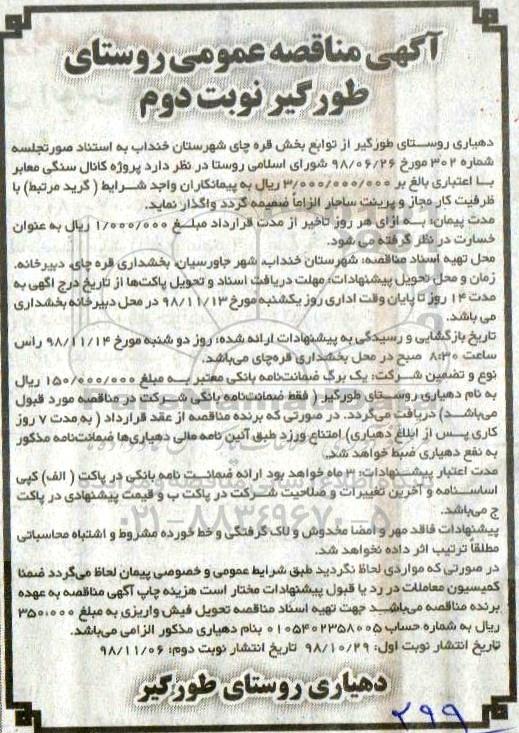 آگهی مناقصه عمومی روستای
طورگیر نوبت دوم
دهیاری روستای طورگیر از توابع بخش قره چای شهرستان خنداب به استناد صورتجلسه
شماره ۳۰۲ مورخ ۹۸/۰۶/۲۶ شورای اسلامی روستا در نظر دارد پروژه کانال سنگی معابر
با اعتباری بالغ بر ۳/۰۰۰/۰۰۰/۰۰۰ ریال به پیمانکاران واجد شرایط ( گرید مرتبط) با
ظرفیت کار مجاز و پرینت ساجار الزاما ضمیمه گردد واگذار نماید.
مدت پیمان: به ازای هر روز تاخیر از مدت قرارداد مبلغ ۱/۰۰۰/۰۰۰ ریال به عنوان
خسارت در نظر گرفته می شود.
محل تهیه اسناد مناقصه: شهرستان خنداب، شهر جاورسیان، بخشداری قره چای، دبیرخانه.
زمان و محل تحویل پیشنهادات: مهلت دریافت اسناد و تحویل پاکت‌ها از تاریخ درج آگهی به
مدت ۱۴ روز تا پایان وقت اداری روز یکشنبه مورخ ۹۸/۱۱/۱۳ در محل دبیرخانه بخشداری
می باشد.
تاریخ بازگشایی و رسیدگی به پیشنهادات ارائه شده: روز دو شنبه مورخ ۹۸/۱۱/۱۴ راس
ساعت ۸:۳۰ صبح در محل بخشداری قره‌چای می‌باشد.
نوع و تضمین شرکت: یک برگ ضمانت‌نامه بانکی معتبر به مبلغ ۱۵۰/۰۰۰/۰۰۰ ریال
به نام دهیاری روستای طورگیر ( فقط ضمانت‌نامه بانکی شرکت در مناقصه مورد قبول
می‌باشد) دریافت می‌گردد. در صورتی که برنده مناقصه از عقد قرارداد ( به مدت ۷ روز
کاری پس از ابلاغ دهیاری) امتناع ورزد طبق آئین نامه مالی دهیاری‌ها ضمانت‌نامه مذکور
به نفع دهیاری ضبط خواهد شد.
مدت اعتبار پیشنهادات: ۳ ماه خواهد بود ارائه ضمانت نامه بانکی در پاکت ( الف) کپی
اساسنامه و آخرین تغییرات و صلاحیت شرکت در پاکت ب و قیمت پیشنهادی در پاکت
ج می‌باشد.
پیشنهادات فاقد مهر و امضا مخدوش و لاک گرفتگی و خط خورده مشروط و اشتباه محاسباتی
مطلقاً ترتیب اثر داده نخواهد شد.
در صورتی که مواردی لحاظ نگردید طبق شرایط عمومی و خصوصی پیمان لحاظ می‌گردد ضمنا
کمیسیون معاملات در رد یا قبول پیشنهادات مختار است هزینه چاپ آگهی مناقصه به عهده
برنده مناقصه می‌باشد جهت تهیه اسناد مناقصه تحویل فیش واریزی به مبلغ ۳۵۰،۰۰۰
ریال به شماره حساب ۰۱۰۵۴۰۲۳۵۸۰۰۵ بنام دهیاری مذکور الزامی می‌باشد.
تاریخ انتشار نوبت اول: ۹۸/۱۰/۲۹ تاریخ انتشار نوبت دوم: ۹۸/۱۱/۰۶
دهیاری روستای طورگیر
۲۹۹
۰۲۱-۸۸۳۴۹۶۷۰-۵